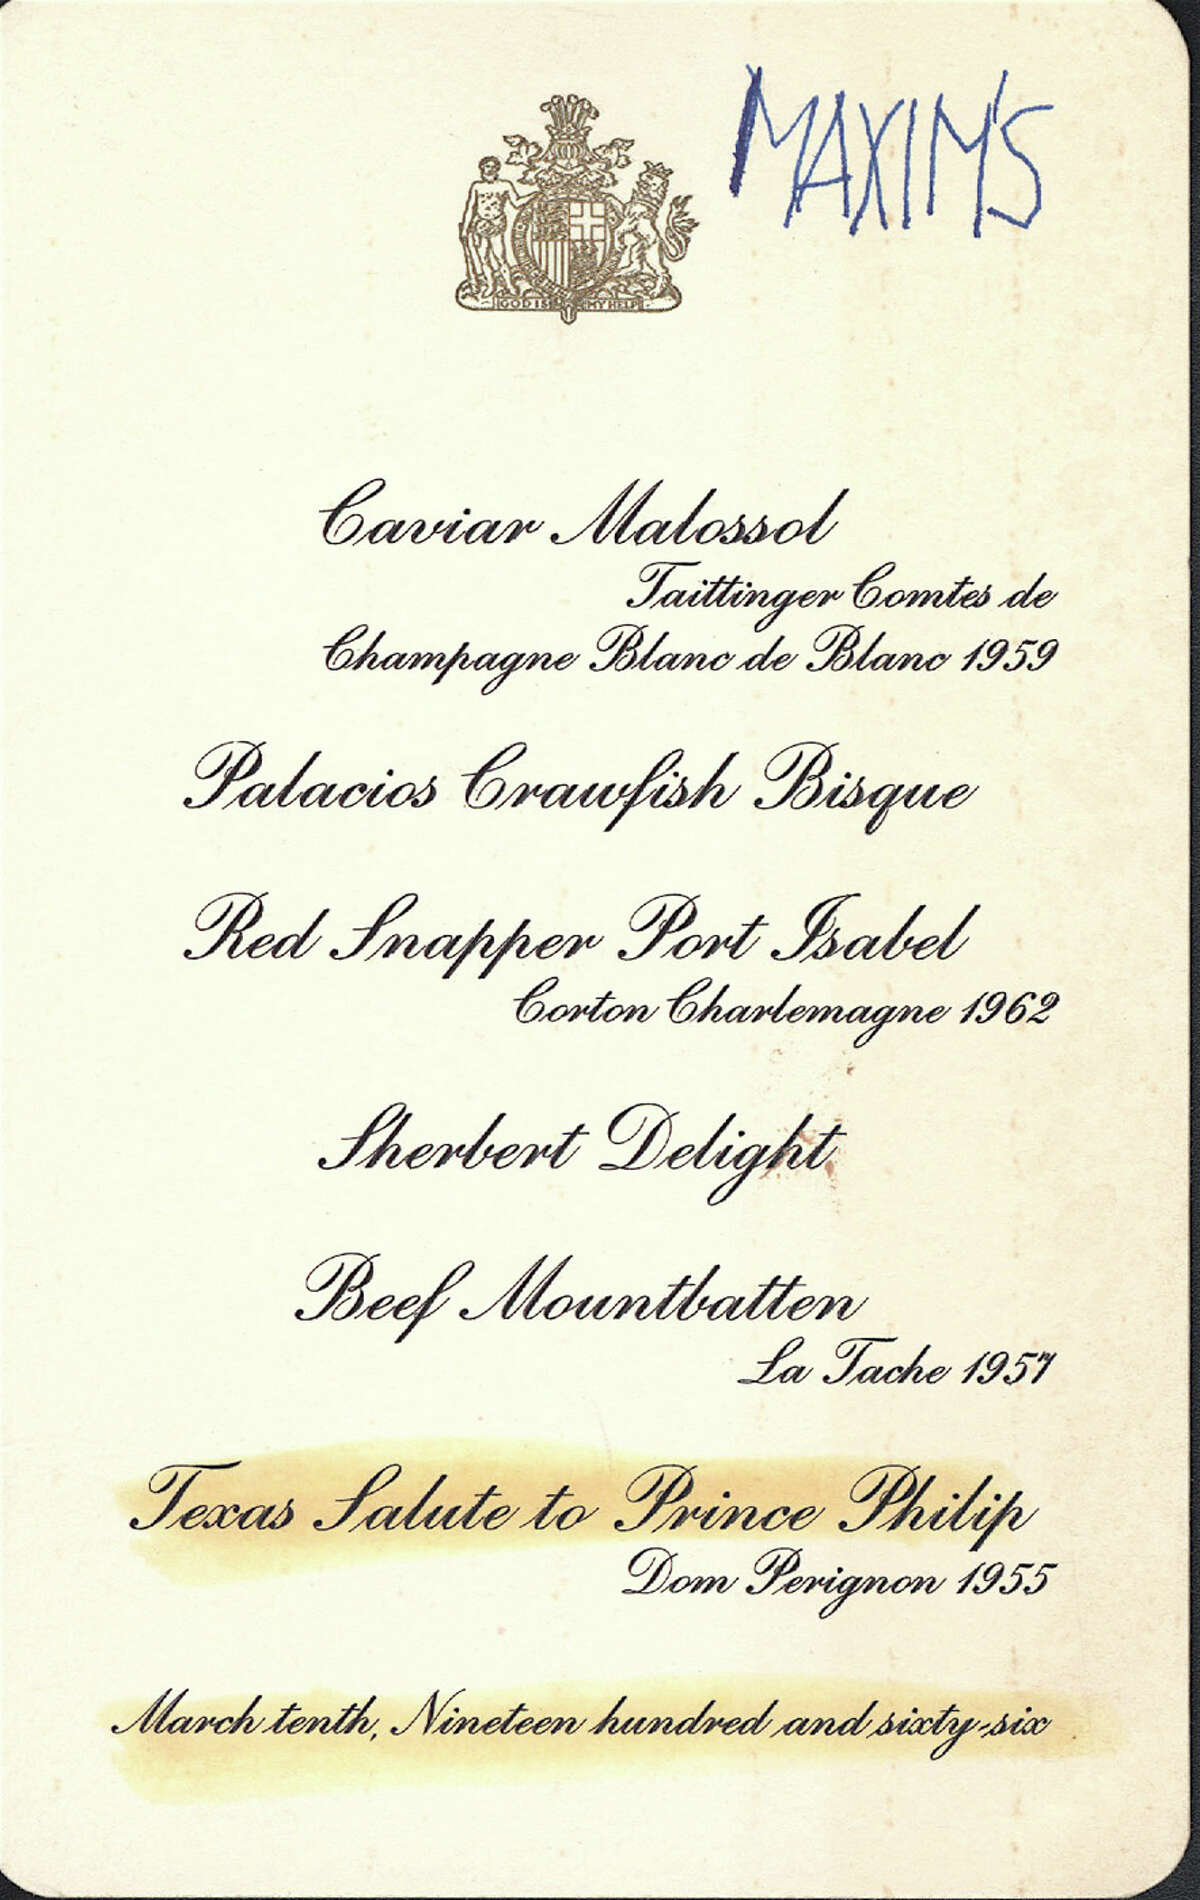 MAXIM'S
GOD IS MY HELP
Caviar Malossol
Taittinger Comtes de
Champagne Blanc de Blanc 1959
Palacios Crawfish Bisque
Red Snapper Port Isabel
Corton Charlemagne 1962
Sherbert Delight
Beef Mountbatten
La Tache 1957
Texas Salute to Prince Philip
Dom Perignon 1955
March tenth, Nineteen hundred and sixty-six